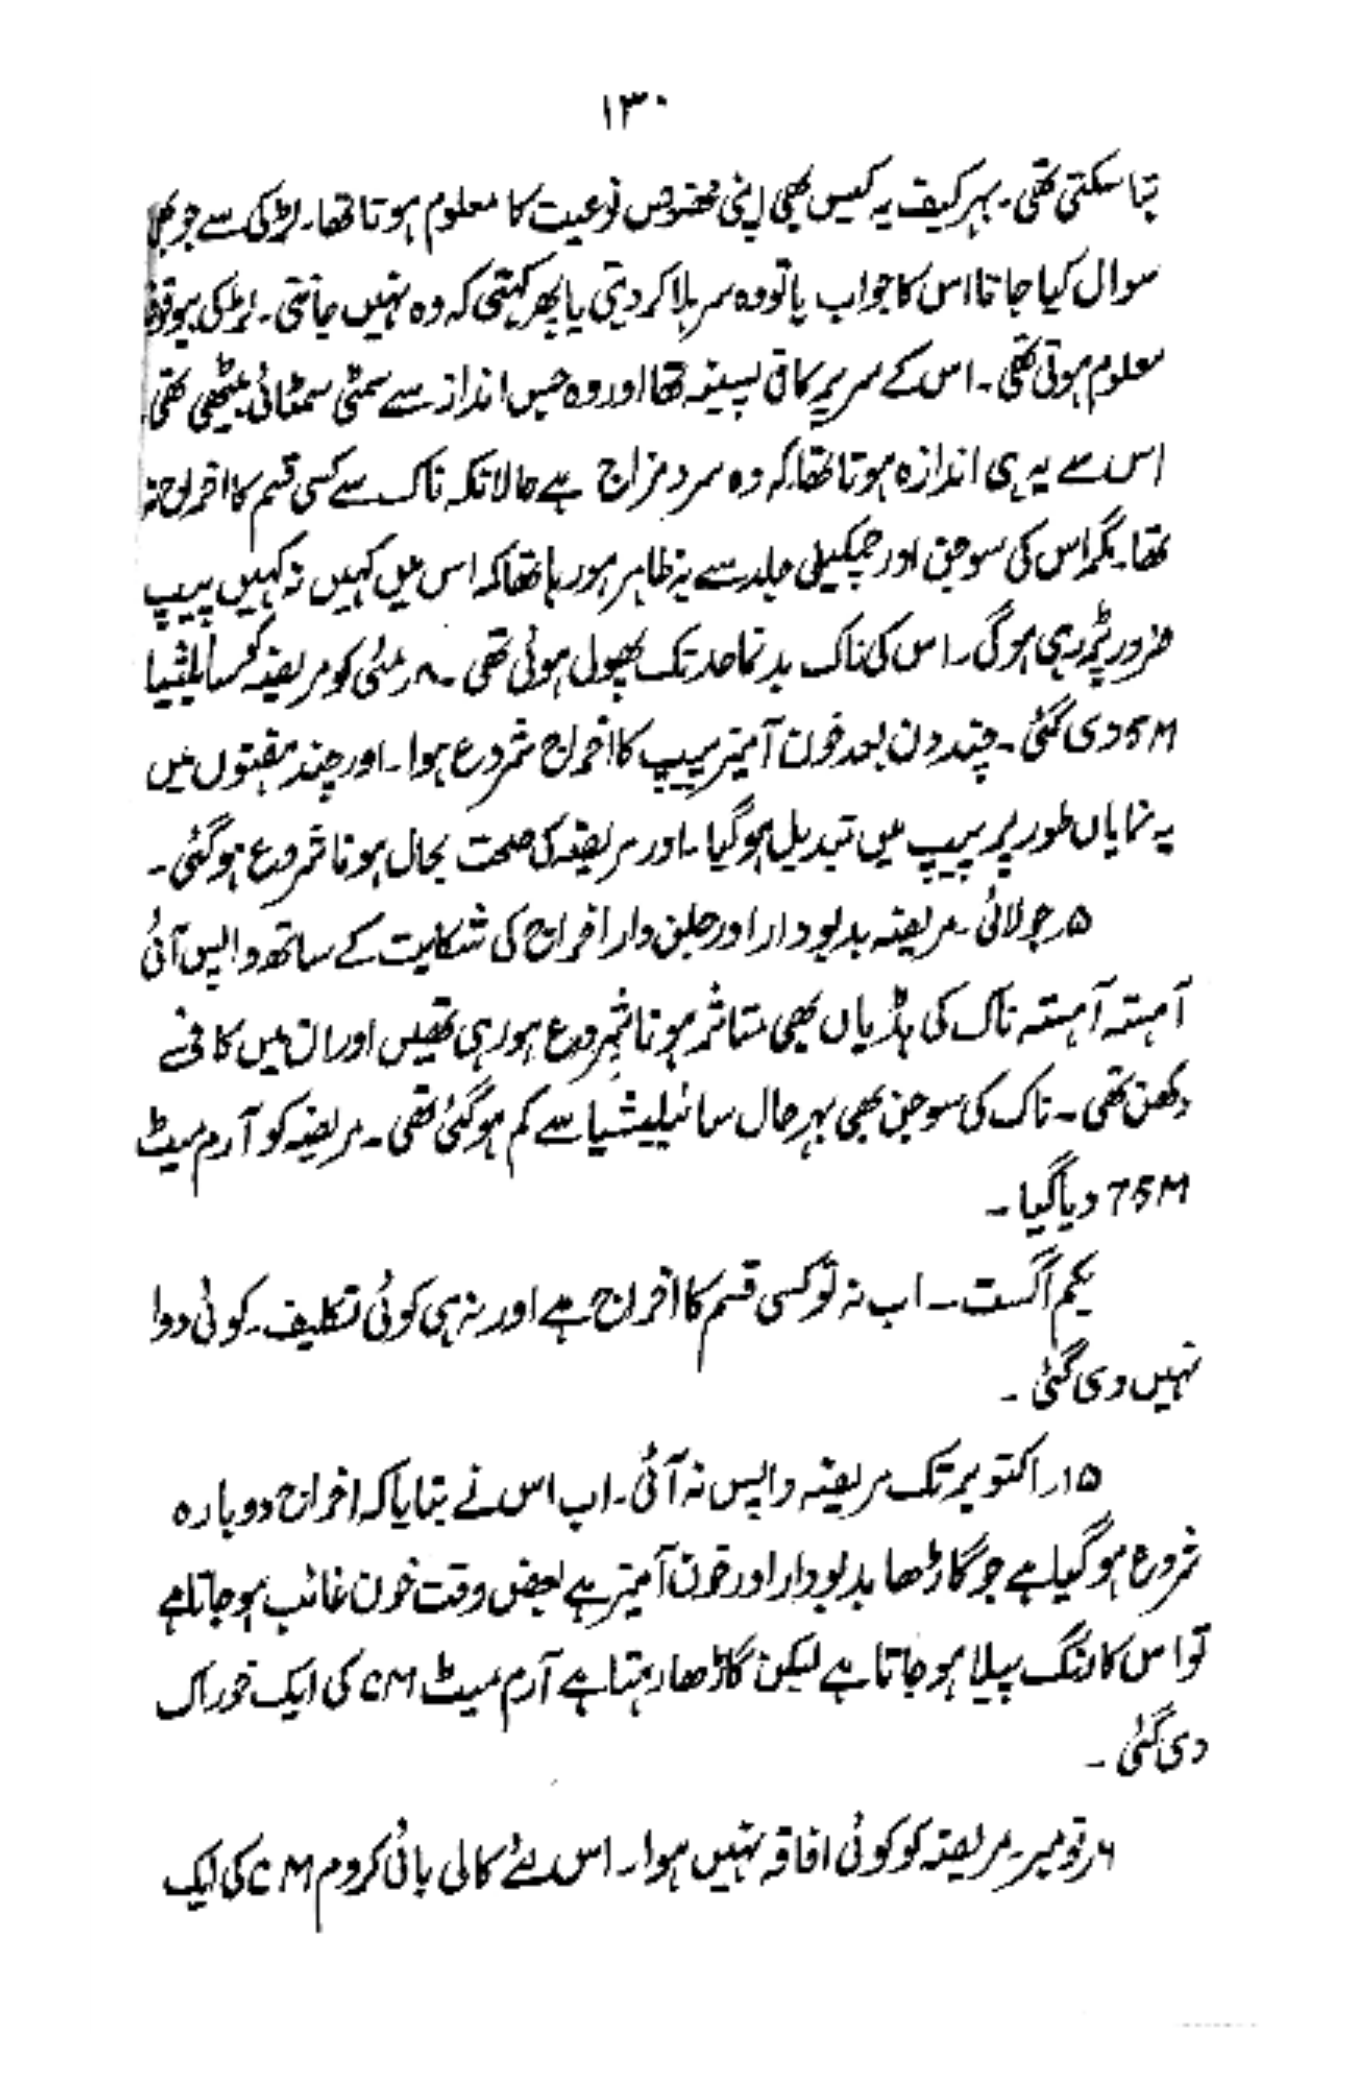 ۱۳۰
بتا سکتی تھی۔ بہر کیف یہ کیس بھی اپنی مخصوص نوعیت کا معلوم ہوتا تھا۔ لڑکی سے جو بھی
سوال کیا جاتا اس کا جواب یا تو وہ سر ہلا کر دیتی یا پھر کہتی کہ وہ نہیں جانتی۔ لڑکی بیوقوف
معلوم ہوتی تھی۔ اس کے سر پر کافی پسینہ تھا اور وہ جس انداز سے سمٹی سمٹائی بیٹھی تھی
اس سے یہ ہی اندازہ ہوتا تھا کہ وہ سرد مزاج ہے حالانکہ ناک سے کسی قسم کا اخراج نہ
تھا۔ مگر اس کی سوجن اور چمکیلی جلد سے یہ ظاہر ہو رہا تھا کہ اس میں کہیں نہ کہیں پیپ
ضرور پڑ رہی ہوگی۔ اس کی ناک بدنما حد تک پھولی ہوئی تھی۔ ۸ر مئی کو مریضہ کو سائیلیشیا
5M دی گئی۔ چند دن بعد خون آمیز پیپ کا اخراج شروع ہوا۔ اور چند ہفتوں میں
یہ نمایاں طور پر پیپ میں تبدیل ہو گیا۔ اور مریضہ کی صحت بحال ہونا شروع ہو گئی۔
۵ر جولائی۔ مریضہ بدبودار اور جلن دار اخراج کی شکایت کے ساتھ واپس آئی
آہستہ آہستہ ناک کی ہڈیاں بھی متاثر ہونا شروع ہو رہی تھیں اور ان میں کافی
دکھن تھی۔ ناک کی سوجن بھی بہرحال سائیلیشیا سے کم ہو گئی تھی۔ مریضہ کو آرم میٹ
75M دیا گیا۔
یکم اگست۔ اب نہ تو کسی قسم کا اخراج ہے اور نہ ہی کوئی تکلیف۔ کوئی دوا
نہیں دی گئی۔
۱۵ر اکتوبر تک مریضہ واپس نہ آئی۔ اب اس نے بتایا کہ اخراج دوبارہ
شروع ہو گیا ہے جو گاڑھا بدبودار اور خون آمیز ہے بعض وقت خون غائب ہو جاتا ہے
تو اس کا رنگ پیلا ہو جاتا ہے لیکن گاڑھا رہتا ہے آرم میٹ CM کی ایک خوراک
دی گئی۔
۶ر نومبر۔ مریضہ کو کوئی افاقہ نہیں ہوا۔ اس لئے کالی بائی کروم CM کی ایک